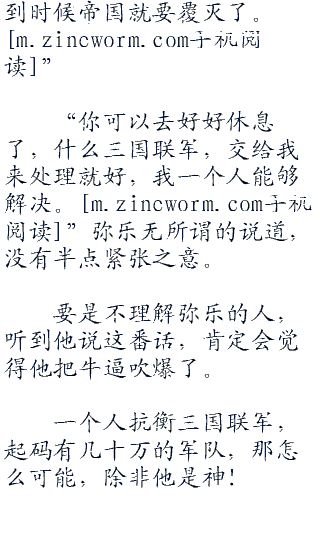 到时候帝国就要覆灭了。
[m.zincworm.com手机阅
读]”
“你可以去好好休息
了，什么三国联军，交给我
来处理就好，我一个人能够
解决。[m.zincworm.com手机
阅读]”弥乐无所谓的说道，
没有半点紧张之意。
要是不理解弥乐的人，
听到他说这番话，肯定会觉
得他把牛逼吹爆了。
一个人抗衡三国联军，
起码有几十万的军队，那怎
么可能，除非他是神！